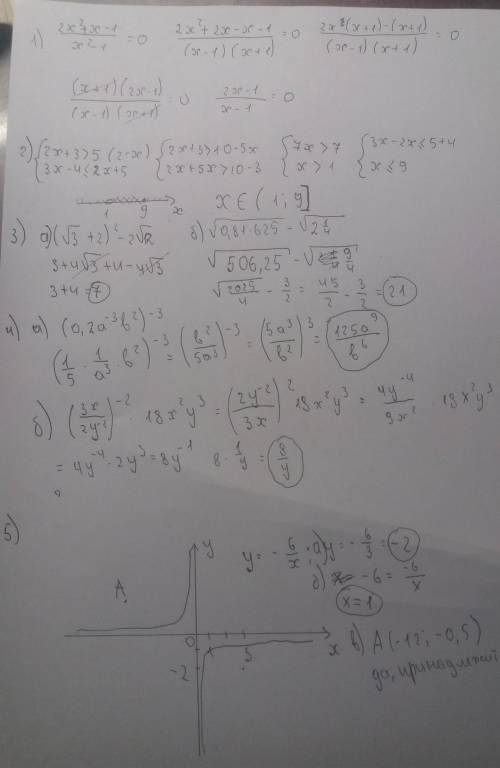 1) (2x²+x-1)/(x²-1) = 0 (2x²+2x-x-1)/((x-1)(x+1)) = 0 (2x(x+1)-(x+1))/((x-1)(x+1)) = 0
((x+1)(2x-1))/((x-1)(x+1)) = 0 (2x-1)/(x-1) = 0
2) {2x+3>5(2-x) {2x+3>10-5x {7x>7 {3x-2x≤5+4
{3x-4≤2x+5 {2x+5x>10-3 {x>1 {x≤9
1 9 x x∈(1;9]
3) а) (√3+2)²-2√ б) √0,81·625 - √2 1/4
3+4√3+4-4√3 √506,25 - √9/4
3+4=7 √2025/4 - 3/2 = 45/2 - 3/2 = 21
4) а) (0,2a⁻³b²)⁻³
(1/5 · 1/a³ · b²)⁻³ = (b²/5a³)⁻³ = (5a³/b²)³ = 125a⁹/b⁶
б) (3x/2y⁻²)⁻² · 18x²y³ = (2y⁻²/3x)² 18x²y³ = 4y⁻⁴/9x² · 18x²y³
= 4y⁻⁴·2y³=8y⁻¹ 8·1/y = 8/y
5)
y y=-6/x; а) y=-6/3=-2
A б) -6=-6/x
x=1
0 3 x в) A(-12; -0,5)
-2 да, принадлежит